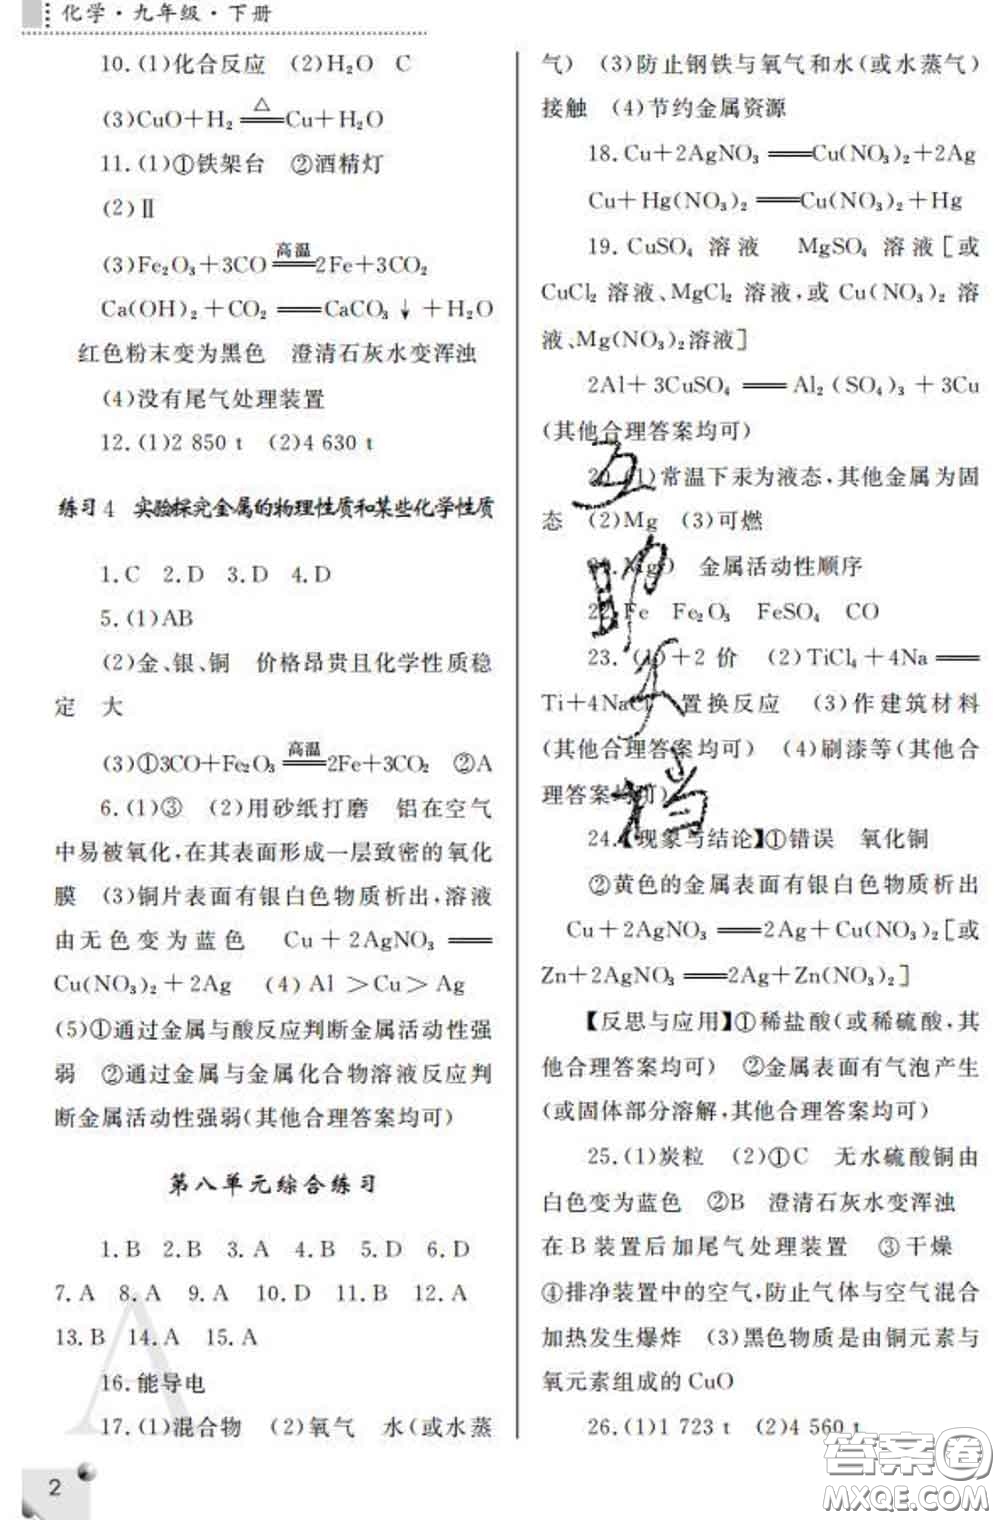 化学·九年级·下册
10.(1)化合反应 (2)H₂O C
(3)CuO+H₂ ══△══ Cu+H₂O
11.(1)①铁架台 ②酒精灯
(2)Ⅱ
(3)Fe₂O₃+3CO ══高温══ 2Fe+3CO₂
Ca(OH)₂+CO₂ ══ CaCO₃↓+H₂O
红色粉末变为黑色 澄清石灰水变浑浊
(4)没有尾气处理装置
12.(1)2 850 t (2)4 630 t
练习4 实验探究金属的物理性质和某些化学性质
1.C 2.D 3.D 4.D
5.(1)AB
(2)金、银、铜 价格昂贵且化学性质稳
定 大
(3)①3CO+Fe₂O₃ ══高温══ 2Fe+3CO₂ ②A
6.(1)③ (2)用砂纸打磨 铝在空气
中易被氧化,在其表面形成一层致密的氧化
膜 (3)铜片表面有银白色物质析出,溶液
由无色变为蓝色 Cu+2AgNO₃ ══
Cu(NO₃)₂+2Ag (4)Al>Cu>Ag
(5)①通过金属与酸反应判断金属活动性强
弱 ②通过金属与金属化合物溶液反应判
断金属活动性强弱(其他合理答案均可)
第八单元综合练习
1.B 2.B 3.A 4.B 5.D 6.D
7.A 8.A 9.A 10.D 11.B 12.A
13.B 14.A 15.A
16.能导电
17.(1)混合物 (2)氧气 水(或水蒸
2
气) (3)防止钢铁与氧气和水(或水蒸气)
接触 (4)节约金属资源
18.Cu+2AgNO₃ ══ Cu(NO₃)₂+2Ag
Cu+Hg(NO₃)₂ ══ Cu(NO₃)₂+Hg
19.CuSO₄ 溶液 MgSO₄ 溶液[或
CuCl₂ 溶液、MgCl₂ 溶液,或 Cu(NO₃)₂ 溶
液、Mg(NO₃)₂溶液]
2Al+3CuSO₄ ══ Al₂(SO₄)₃+3Cu
(其他合理答案均可)
20.(1)常温下汞为液态,其他金属为固
态 (2)Mg (3)可燃
21.MgO 金属活动性顺序
22.Fe Fe₂O₃ FeSO₄ CO
23.(1)+2价 (2)TiCl₄+4Na ══
Ti+4NaCl 置换反应 (3)作建筑材料
(其他合理答案均可) (4)刷漆等(其他合
理答案均可)
24.【现象与结论】①错误 氧化铜
②黄色的金属表面有银白色物质析出
Cu+2AgNO₃ ══ 2Ag+Cu(NO₃)₂[或
Zn+2AgNO₃ ══ 2Ag+Zn(NO₃)₂]
【反思与应用】①稀盐酸(或稀硫酸,其
他合理答案均可) ②金属表面有气泡产生
(或固体部分溶解,其他合理答案均可)
25.(1)炭粒 (2)①C 无水硫酸铜由
白色变为蓝色 ②B 澄清石灰水变浑浊
在B装置后加尾气处理装置 ③干燥
④排净装置中的空气,防止气体与空气混合
加热发生爆炸 (3)黑色物质是由铜元素与
氧元素组成的CuO
26.(1)1 723 t (2)4 560 t
答案圈
MXQE.COM